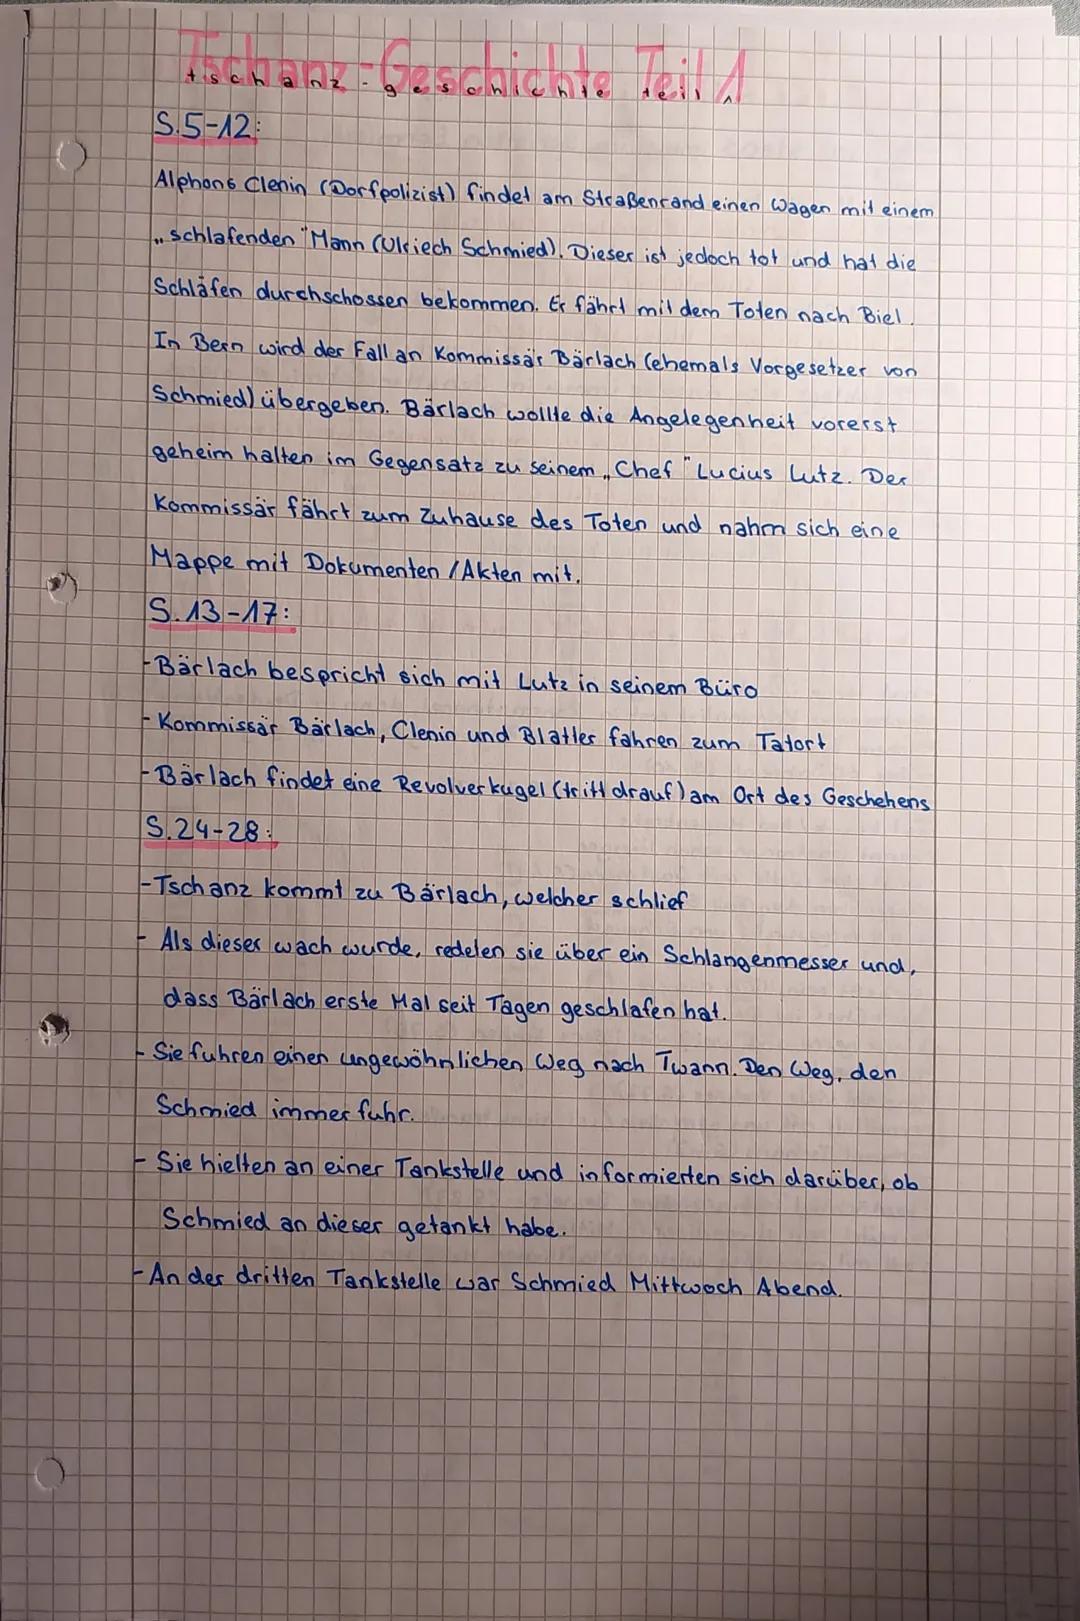 Tschanz-Geschichte Teil 1
tschanz-geschichte teil 1
S.5-12:
Alphons Clenin (Dorfpolizist) findet am Straßenrand einen Wagen mit einem
„schlafenden" Mann (Ulriech Schmied). Dieser ist jedoch tot und hat die
Schläfen durchschossen bekommen. Er fährt mit dem Toten nach Biel.
In Bern wird der Fall an Kommissär Bärlach (ehemals Vorgesetzer von
Schmied) übergeben. Bärlach wollte die Angelegenheit vorerst
geheim halten im Gegensatz zu seinem „Chef" Lucius Lutz. Der
Kommissär fährt zum Zuhause des Toten und nahm sich eine
Mappe mit Dokumenten/Akten mit.
S.13-17:
-Bärlach bespricht sich mit Lutz in seinem Büro
-Kommissär Bärlach, Clenin und Blatter fahren zum Tatort
-Bärlach findet eine Revolverkugel (tritt drauf) am Ort des Geschehens
S.24-28:
-Tschanz kommt zu Bärlach, welcher schlief
- Als dieser wach wurde, redeten sie über ein Schlangenmesser und,
dass Bärlach erste Mal seit Tagen geschlafen hat.
- Sie fuhren einen ungewöhnlichen Weg nach Twann. Den Weg, den
Schmied immer fuhr.
- Sie hielten an einer Tankstelle und informierten sich darüber, ob
Schmied an dieser getankt habe.
-An der dritten Tankstelle war Schmied Mittwoch Abend.